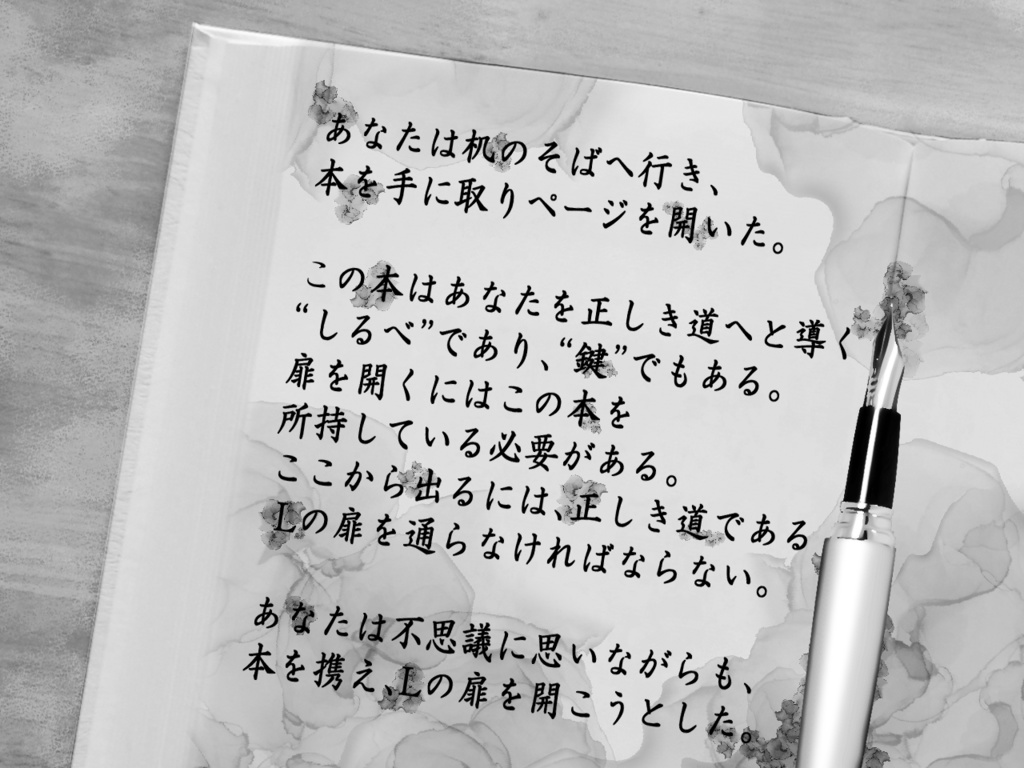 あなたは机のそばへ行き、
本を手に取りページを開いた。
この本はあなたを正しき道へと導く
“しるべ”であり、“鍵”でもある。
扉を開くにはこの本を
所持している必要がある。
ここから出るには、正しき道である
Lの扉を通らなければならない。
あなたは不思議に思いながらも、
本を携え、Lの扉を開こうとした。